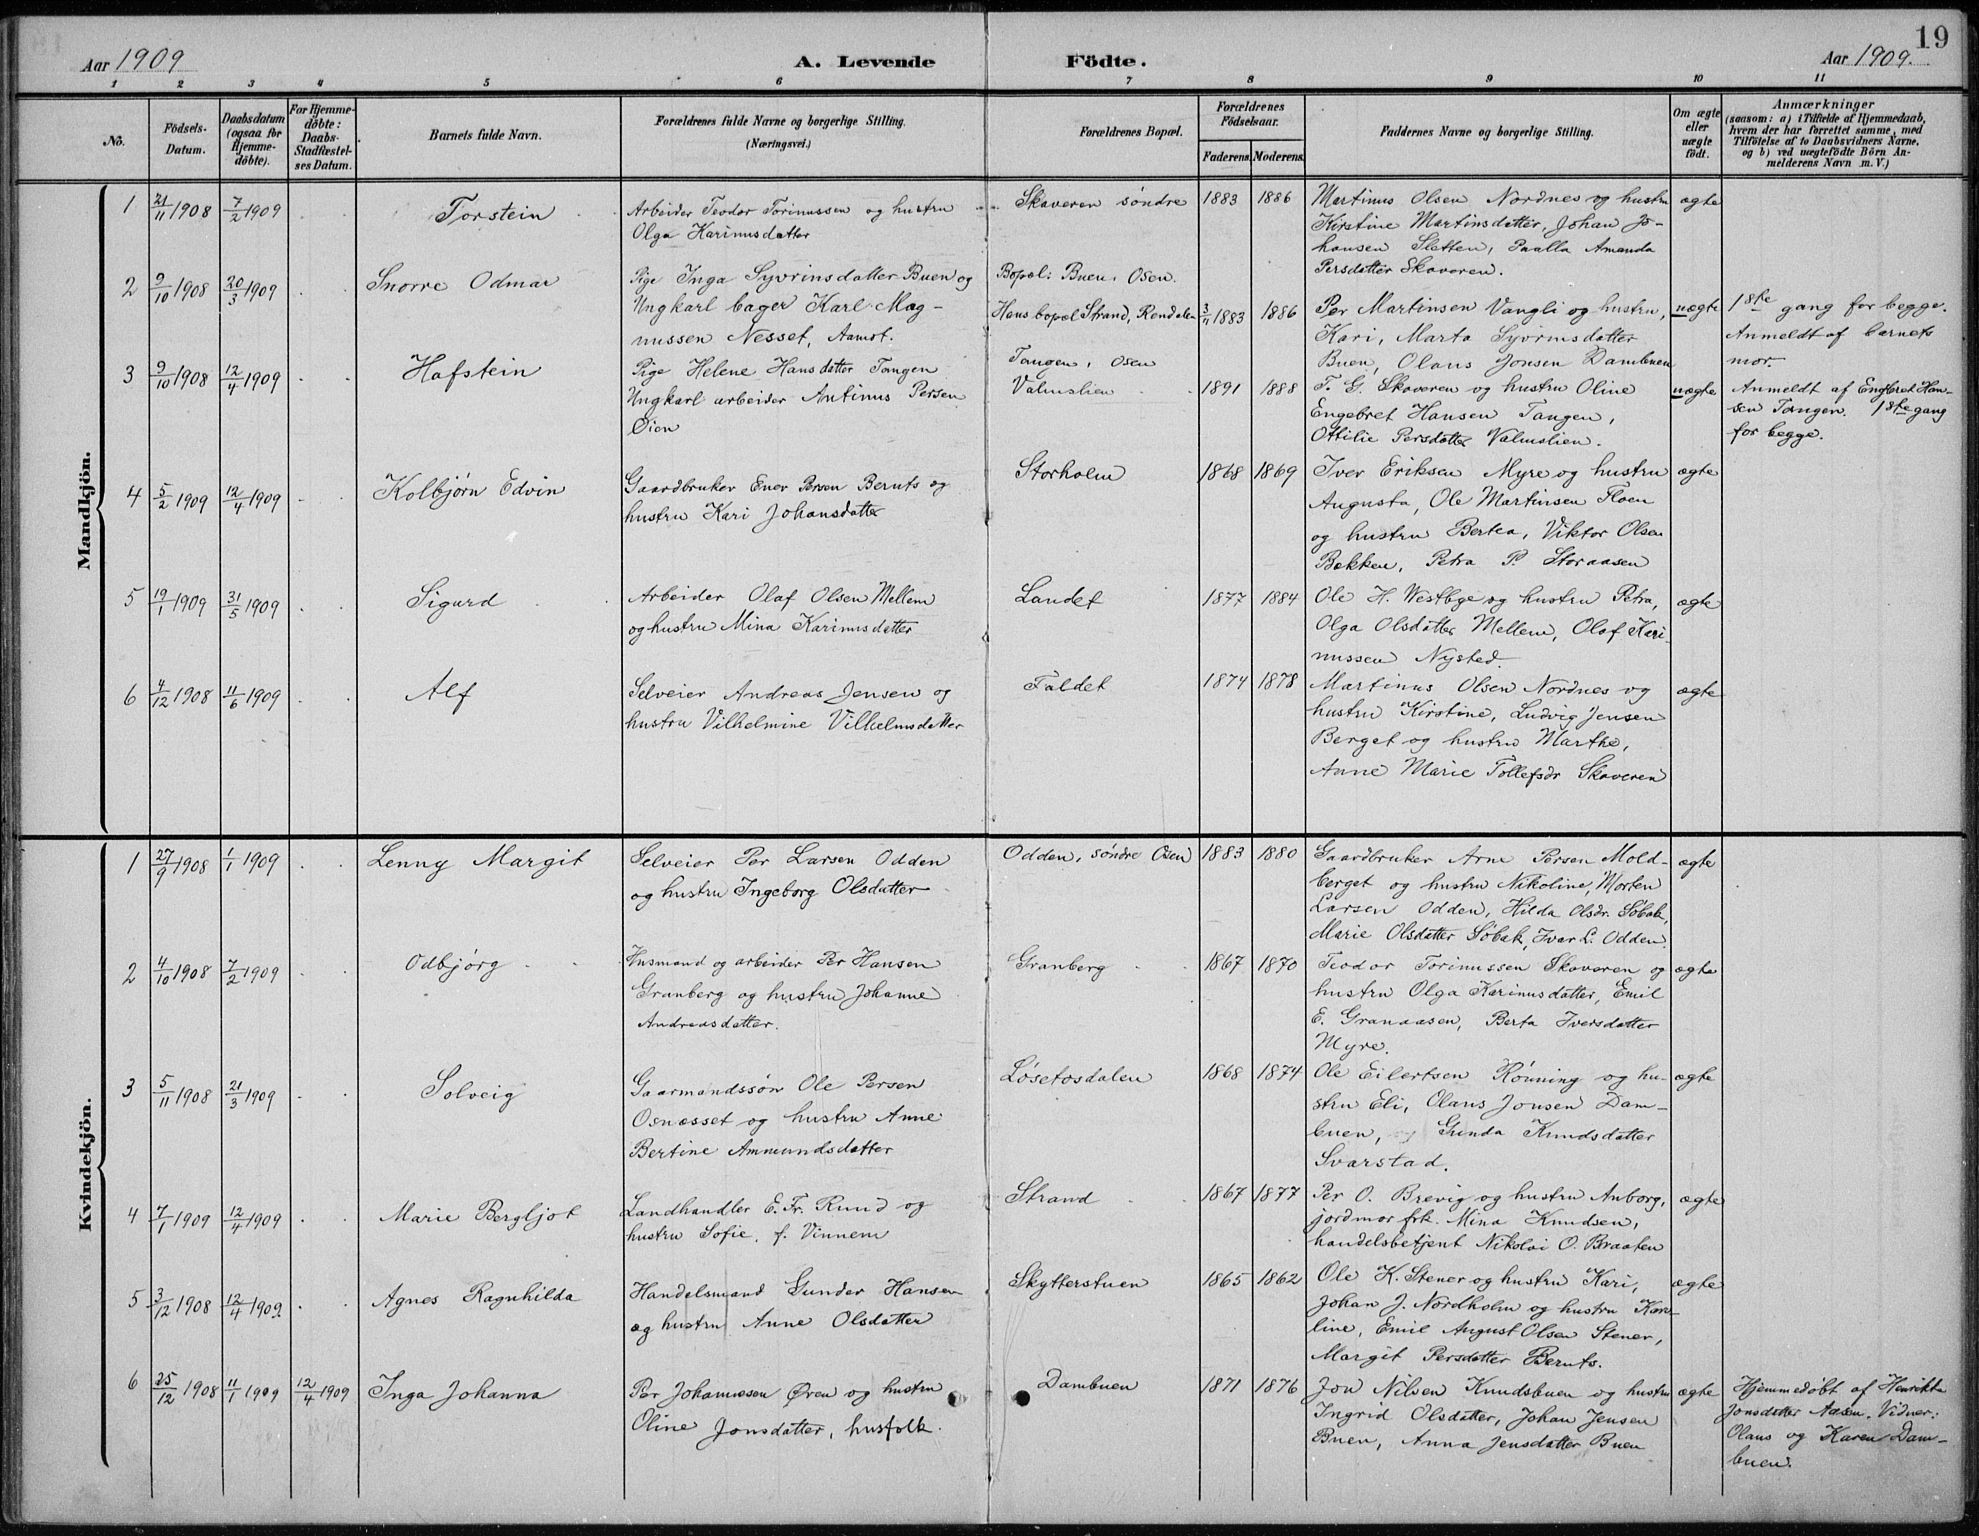 19
Aar 1909
A. Levende Födte.
Aar 1909.
1 2 3 4 5 6 7 8 9 10 11
No.
Födsels-Datum.
Daabsdatum (ogsaa for Hjemme-döbte).
For Hjemme-döbte: Daabs-Stadfæstel-ses Datum.
Barnets fulde Navn.
Forældrenes fulde Navne og borgerlige Stilling. (Næringsvei.)
Forældrenes Bopæl.
Forældrenes Födselsaar.
Faderens. Moderens.
Faddernes Navne og borgerlige Stilling.
Om ægte eller uægte født.
Anmærkninger
(saasom: a) i Tilfælde af Hjemmedaab,
hvem der har forrettet samme, med
Tilföielse af to Daabsvidners Navne,
og b) ved uægtefödte Börn An-
melderens Navn m. V.)
Mandkjön.
1 21/11 1908 7/2 1909 Torstein
Arbeider Teodor Torinussen og hustru
Olga Karinusdatter
Skaveren søndre 1883 1886
Martinus Olsen Nordnes og hustru
Kirstine Martinsdatter, Johan Jo-
hansen Sletten, Paalla Amanda
Persdatter Skaveren.
ægte
2 9/10 1908 20/3 1909 Snorre Odmar
Pige Inga Syvrinsdatter Buen og
Ungkarl bager Karl Mag-
nussen Nesset, Aamot.
Bopæl: Buen, Osen.
Hans bopæl Strand, Rendalen 3/11 1883 1886
Per Martinsen Vangli og hustru,
Kari, Marta Syvrinsdatter
Buen, Olaus Jonsen Dambuen
uægte
1ste gang for begge.
Anmeldt af barnets
mor.
3 9/10 1908 12/4 1909 Hafstein
Pige Helene Hansdatter Tangen
Ungkarl arbeider Antinus Persen
Øien
Tangen, Osen
Valmslien 1891 1888
T. G. Skaveren og hustru Oline
Engebret Hansen Tangen,
Ottilie Persdatter Valmslien.
uægte
Anmeldt af Engbret Han-
sen Tangen. 1ste gang
for begge.
4 5/2 1909 12/4 1909 Kolbjørn Edvin
Gaardbruker Ener Persen Bernts og
hustru Kari Johansdatter
Storholm 1868 1869
Iver Eriksen Myre og hustru
Augusta, Ole Martinsen Floen
og hustru Bertea, Viktor Olsen
Bekken, Petra P. Storaasen
ægte
5 19/1 1909 31/5 1909 Sigurd
Arbeider Olaf Olsen Mellem
og hustru Mina Karinusdatter
Landet 1877 1884
Ole H. Westbye og hustru Petra,
Olga Olsdatter Mellem, Olaf Kari-
nussen Nysted.
ægte
6 4/12 1908 11/6 1909 Alf
Selveier Andreas Jensen og
hustru Vilhelmine Vilhelmsdatter
Faldet 1874 1878
Martinus Olsen Nordnes og
hustru Kirstine, Ludvig Jensen
Berget og hustru Marthe,
Anne Marie Tollefsdr Skaveren
ægte
Kvindekjön.
1 27/9 1908 1/1 1909 Lenny Margit
Selveier Per Larsen Odden
og hustru Ingeborg Olsdatter
Odden, søndre Osen 1883 1880
Gaardbruker Arne Persen Mold-
berget og hustru Nikoline, Morten
Larsen Odden, Hilda Olsdr. Søbak,
Marie Olsdatter Søbak, Ivar L. Odden.
ægte
2 4/10 1908 7/2 1909 Odbjørg
Husmand og arbeider Per Hansen
Granberg og hustru Johanne
Andreasdatter.
Granberg 1867 1870
Teodor Torinussen Skaveren og
hustru Olga Karinusdatter, Emil
E. Granaasen, Berta Iversdatter
Myre.
ægte
3 5/11 1908 21/3 1909 Solveig
Gaarmandssøn Ole Persen
Osnæsset og hustru Anne
Bertine Ammundsdatter
Løsetosdalen 1868 1874
Ole Eilertsen Rønning og hu-
stru Eli, Olaus Jonsen Dam-
buen, og Gunda Knudsdatter
Svarstad.
ægte
4 7/1 1909 12/4 1909 Marie Bergljot
Landhandler E. Fr. Rund og
hustru Sofie, f. Vinnem
Strand 1867 1877
Per O. Brevig og hustru Anborg,
jordmor frk. Mina Knudsen,
handelsbetjent Nikolai O. Braaten
ægte
5 3/12 1908 12/4 1909 Agnes Ragnhilda
Handelsmand Gunder Hansen
og hustru Anne Olsdatter
Skytterstuen 1865 1862
Ole K. Stener og hustru Kari,
Johan J. Nordholm og hustru Karo-
line, Emil August Olsen Stener,
Margit Persdatter Bernts.
ægte
6 25/12 1908 11/1 1909 12/4 1909 Inga Johanna
Per Johannesen Øren og hustru
Oline Jonsdatter, husfolk.
Dambuen 1871 1876
Jon Nilsen Knudsbuen og hustru
Ingrid Olsdatter, Johan Jensen
Buen, Anna Jensdatter Buen
ægte
Hjemmedøbt af Henrikka
Jonsdatter Aasen. Vidner:
Olaus og Karen Dam-
buen.